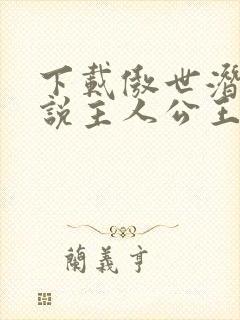 下載傲世潛
說主人公王
蘭義亨